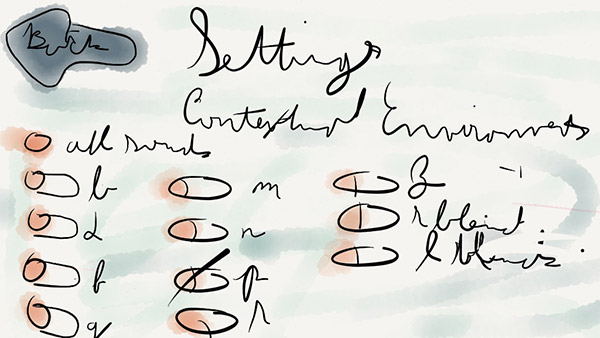 Back
Settings
Contextual Environments
all sounds
b
m
z
d
n
r blend
f
p
l blends
g
r